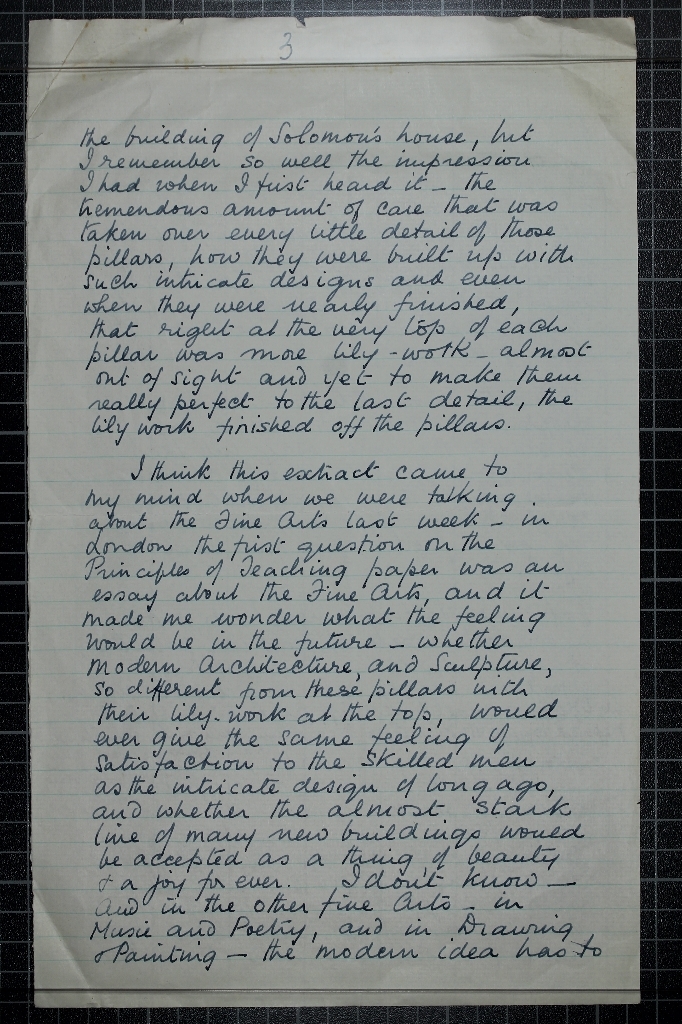 3
the building of Solomon's house, but
I remember so well the impression
I had when I first heard it - the
tremendous amount of care that was
taken over every little detail of those
pillars, how they were built up with
such intricate designs and even
when they were nearly finished,
that right at the very top of each
pillar was more lily-work - almost
out of sight and yet to make them
really perfect to the last detail, the
lily work finished off the pillars.
I think this extract came to
my mind when we were talking
about the Fine Arts last week - in
London the first question on the
Principles of Teaching paper was an
essay about the Fine Arts, and it
made me wonder what the feeling
would be in the future - whether
Modern Architecture, and Sculpture,
so different from these pillars with
their lily-work at the top, would
ever give the same feeling of
satisfaction to the skilled men
as the intricate design of long ago,
and whether the almost stark
line of many new buildings would
be accepted as a thing of beauty
& a joy for ever. I don't know -
And in the other fine Arts - in
Music and Poetry, and in Drawing
& Painting - the modern idea has to